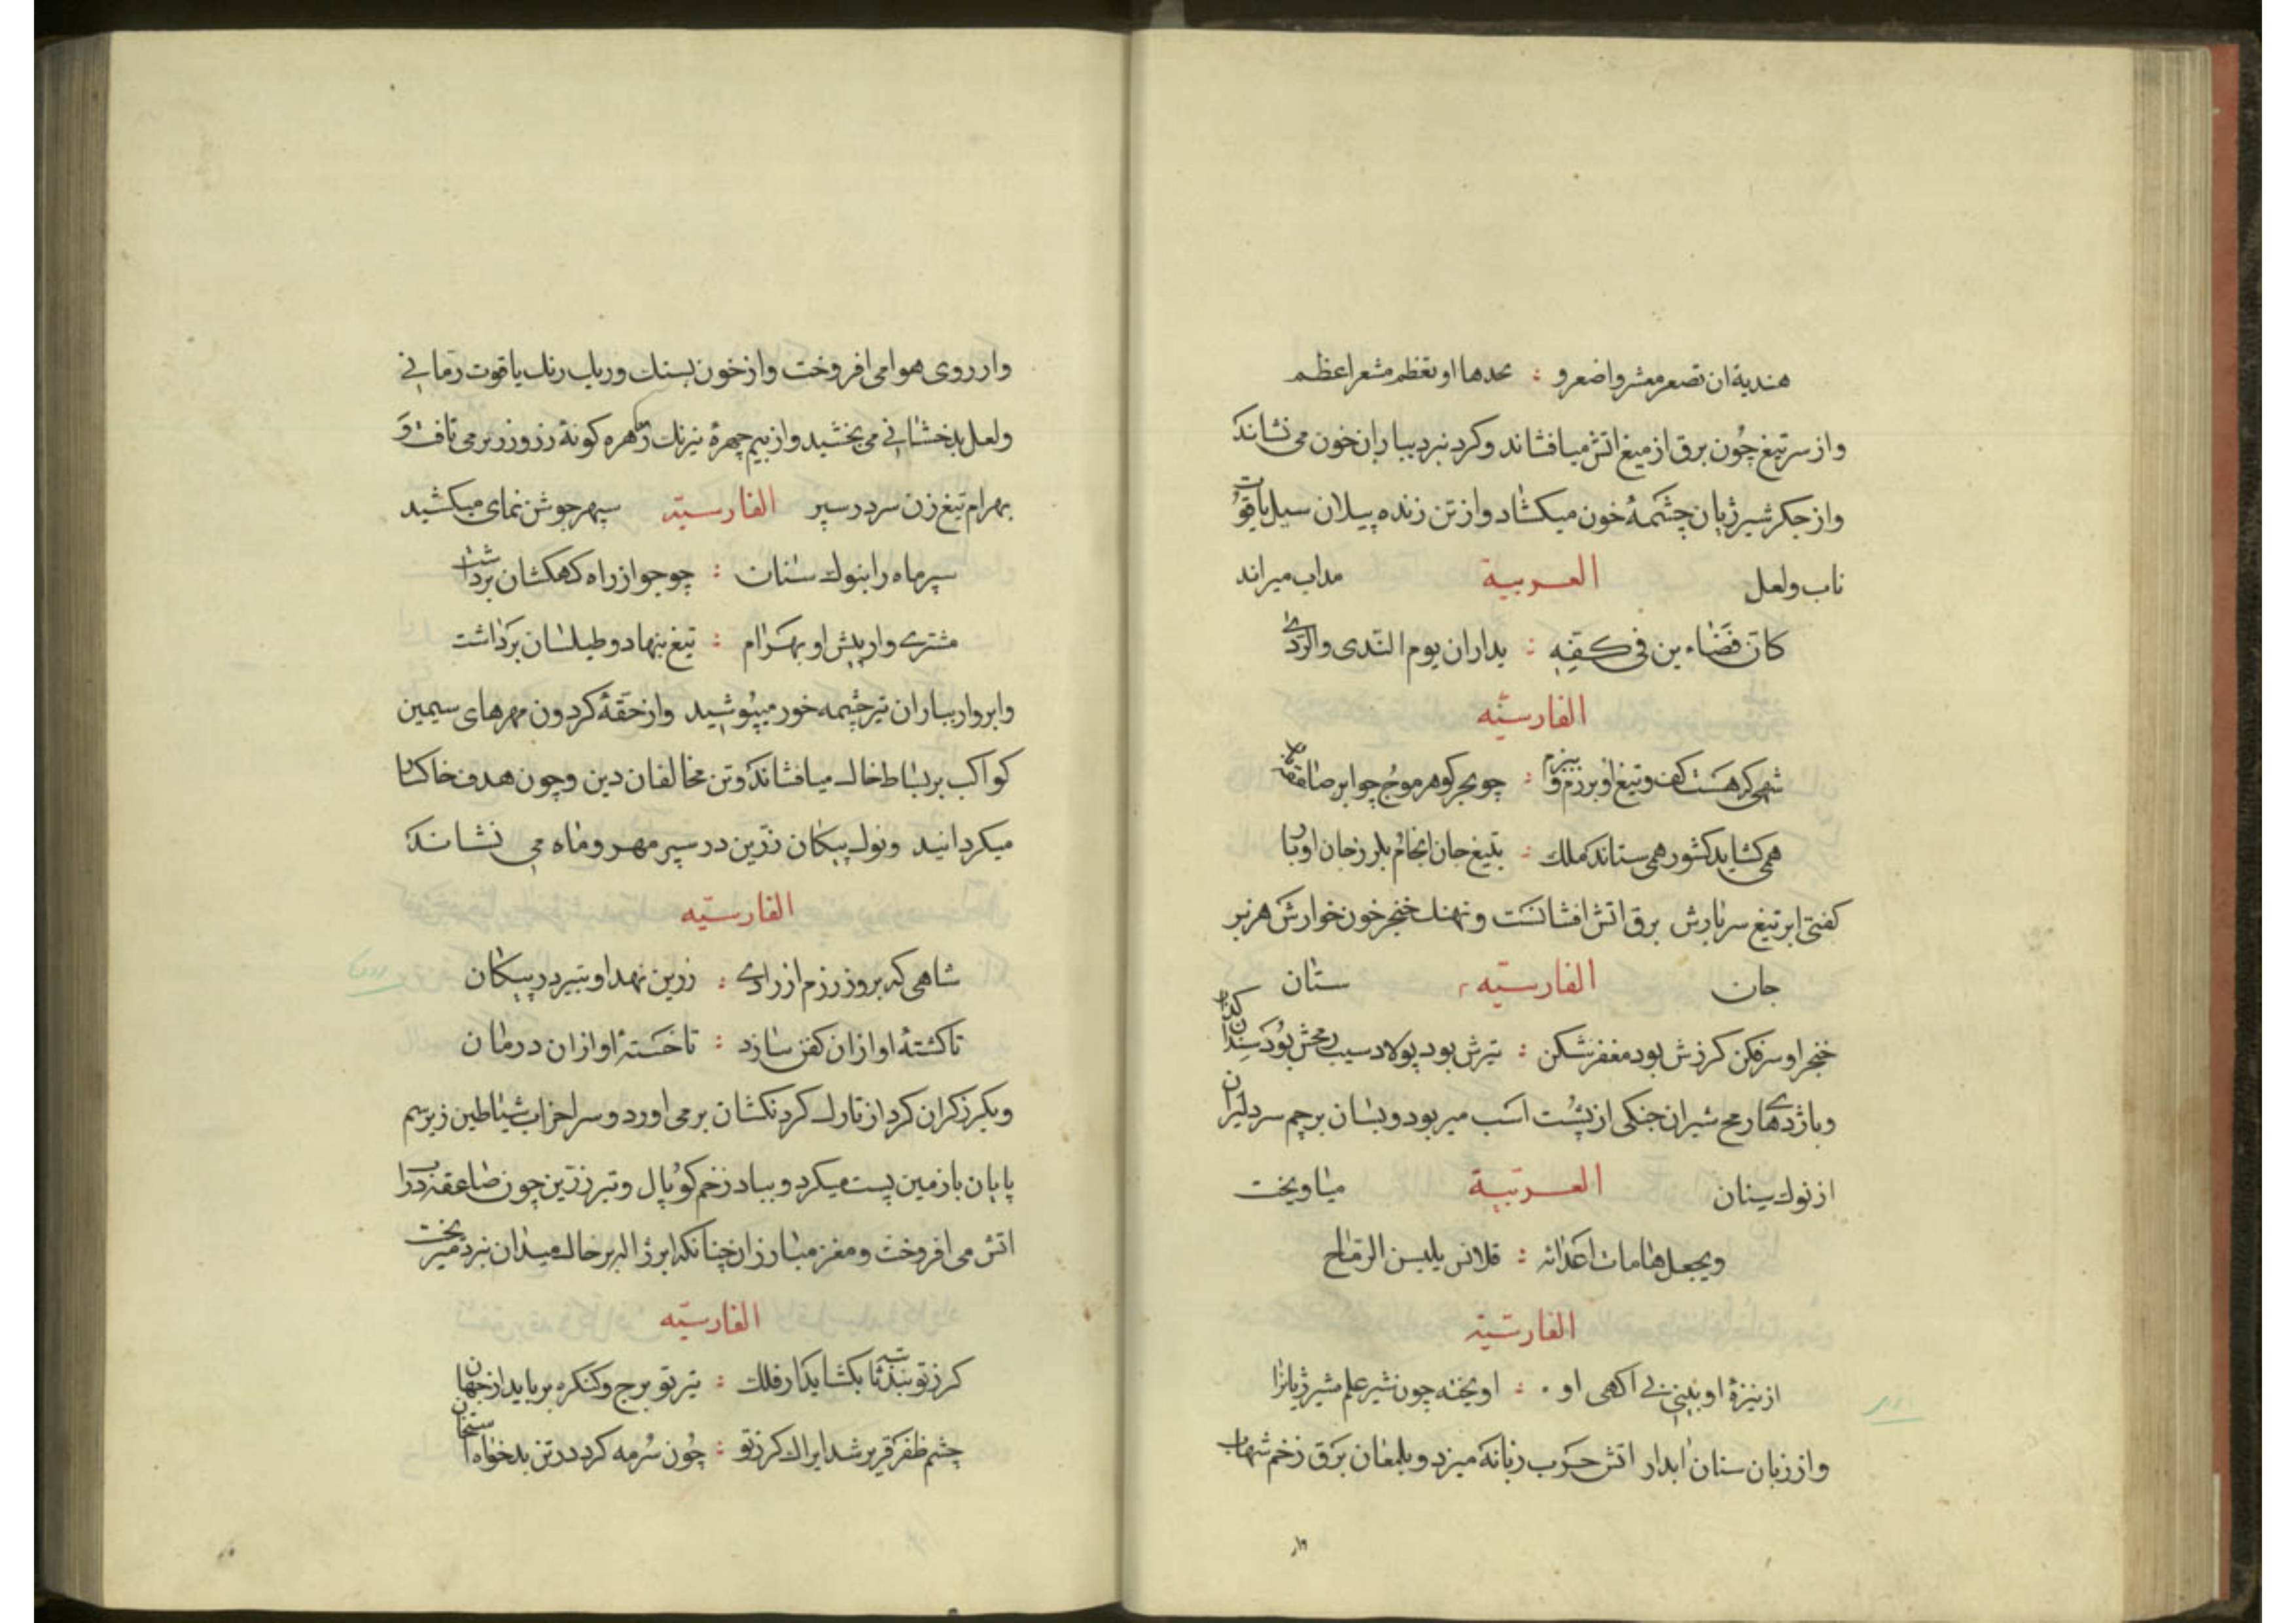 هندیة ان تصعر معشر واضعر و : بحدها او تعظم مشعر اعظم
واز سر تیغ چون برق از میغ اتش میافشاند و کرد نبرد بباران خون می نشاند
واز جکر شیر ژیان چشمهٔ خون میکشاد واز تن زنده پیلان سیل یاقوت
ناب ولعل العربیة مذاب میراند
کان قضاء ین فی کفیه : یداران یوم الندی والردی
الفارسیّه
شهی که هست کف و تیغ او برزم و ببزم : چو بحر کوهر موج چو ابر صاعقه بار
همی کشاید کشور همی ستاند ملک : بتیغ جان
کفتی ابر تیغ سربارش برق اتش افشانست و نهنک خنجر خون خوارش هزبر
جان الفارسیّه ستان
خنجر او سر فکن کرزش بود مغفر شکن : تیرش بود پولاد سنب رمحش بود سندان کذار
وباژدهای رمح شیران جنکی از پشت اسب میربود وبسان برچم سر دلیران
از نوک سنان العربیّة میاویخت
ویجعل هامات اعدائه : قلانس یلبسن الرماح
الفارسیّه
از نیزهٔ او بینی بی اکهی او : اویخته چون شیر علم شیر ژیانرا
واز زبان سنان ابدار اتش حرب زبانه میزد وبلمعان برق زخم شهاب
وار روی هوا می افروخت واز خون بسنک وریک رنک یاقوت رمانی
ولعل بدخشانی می بخشید واز بیم چهرهٔ نیرنک زهره کونهٔ رز وزریر می تافت و
بهرام تیغ زن سر در سپر الفارسیّة سپهر جوشن نمای میکشید
سپر ماه را بنوک سنان : چو جو از راه کهکشان برداشت
مشتری وار پیش او بهرام : تیغ بنهاد و طیلسان برداشت
وابر وار بباران تیر چشمه خور میپوشید واز حقهٔ کردون مهرهای سیمین
کواکب بر بساط خاک میافشاند و تن مخالفان دین و چون هدف خاکسار
میکردانید ونوک پیکان زرّین در سپر مهر وماه می نشاند
الفارسیّه
شاهی که بروز رزم از رادی : زرین نهد او بتیر در پیکان
تا کشتهٔ او ازان کفن سازد : تا خستهٔ او ازان درمان
وبکرز کران کرد از تارک کردنکشان برمی اورد و سر احزاب شیاطین زیر سم
پایان با زمین پست میکرد وبباد زخم کوپال وتبرزرین چون صاعقه
اتش می افروخت ومغز مبارزان چنانکه ابر ژاله بر خاک میدان نبرد میریخت
الفارسیّه
کرز تو بکشاید از فلک : تیر تو برج و کنکره برباید از جهان
چشم ظفر قریر شد ایراک کرز تو : چون سرمه کرد در تن بدخواه استخوان